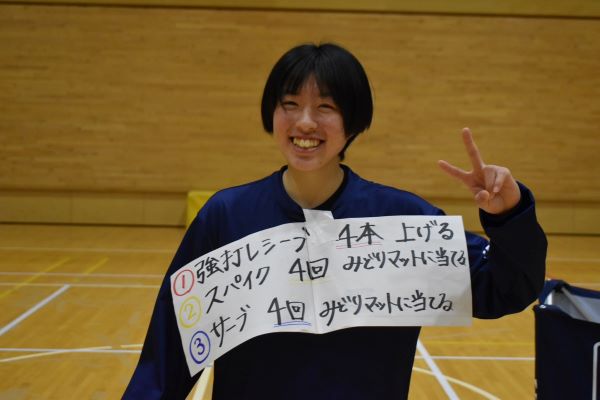 ① 強打レシーブ 4本 上げる
② スパイク 4回 みどりマットに当てる
③ サーブ 4回 みどりマットに当てる